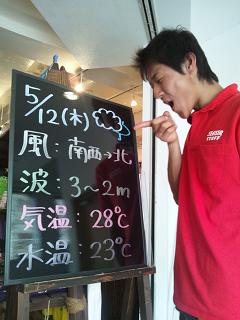 5/12(木)
風:南西→北
波:3〜2m
気温:28℃
水温:23℃